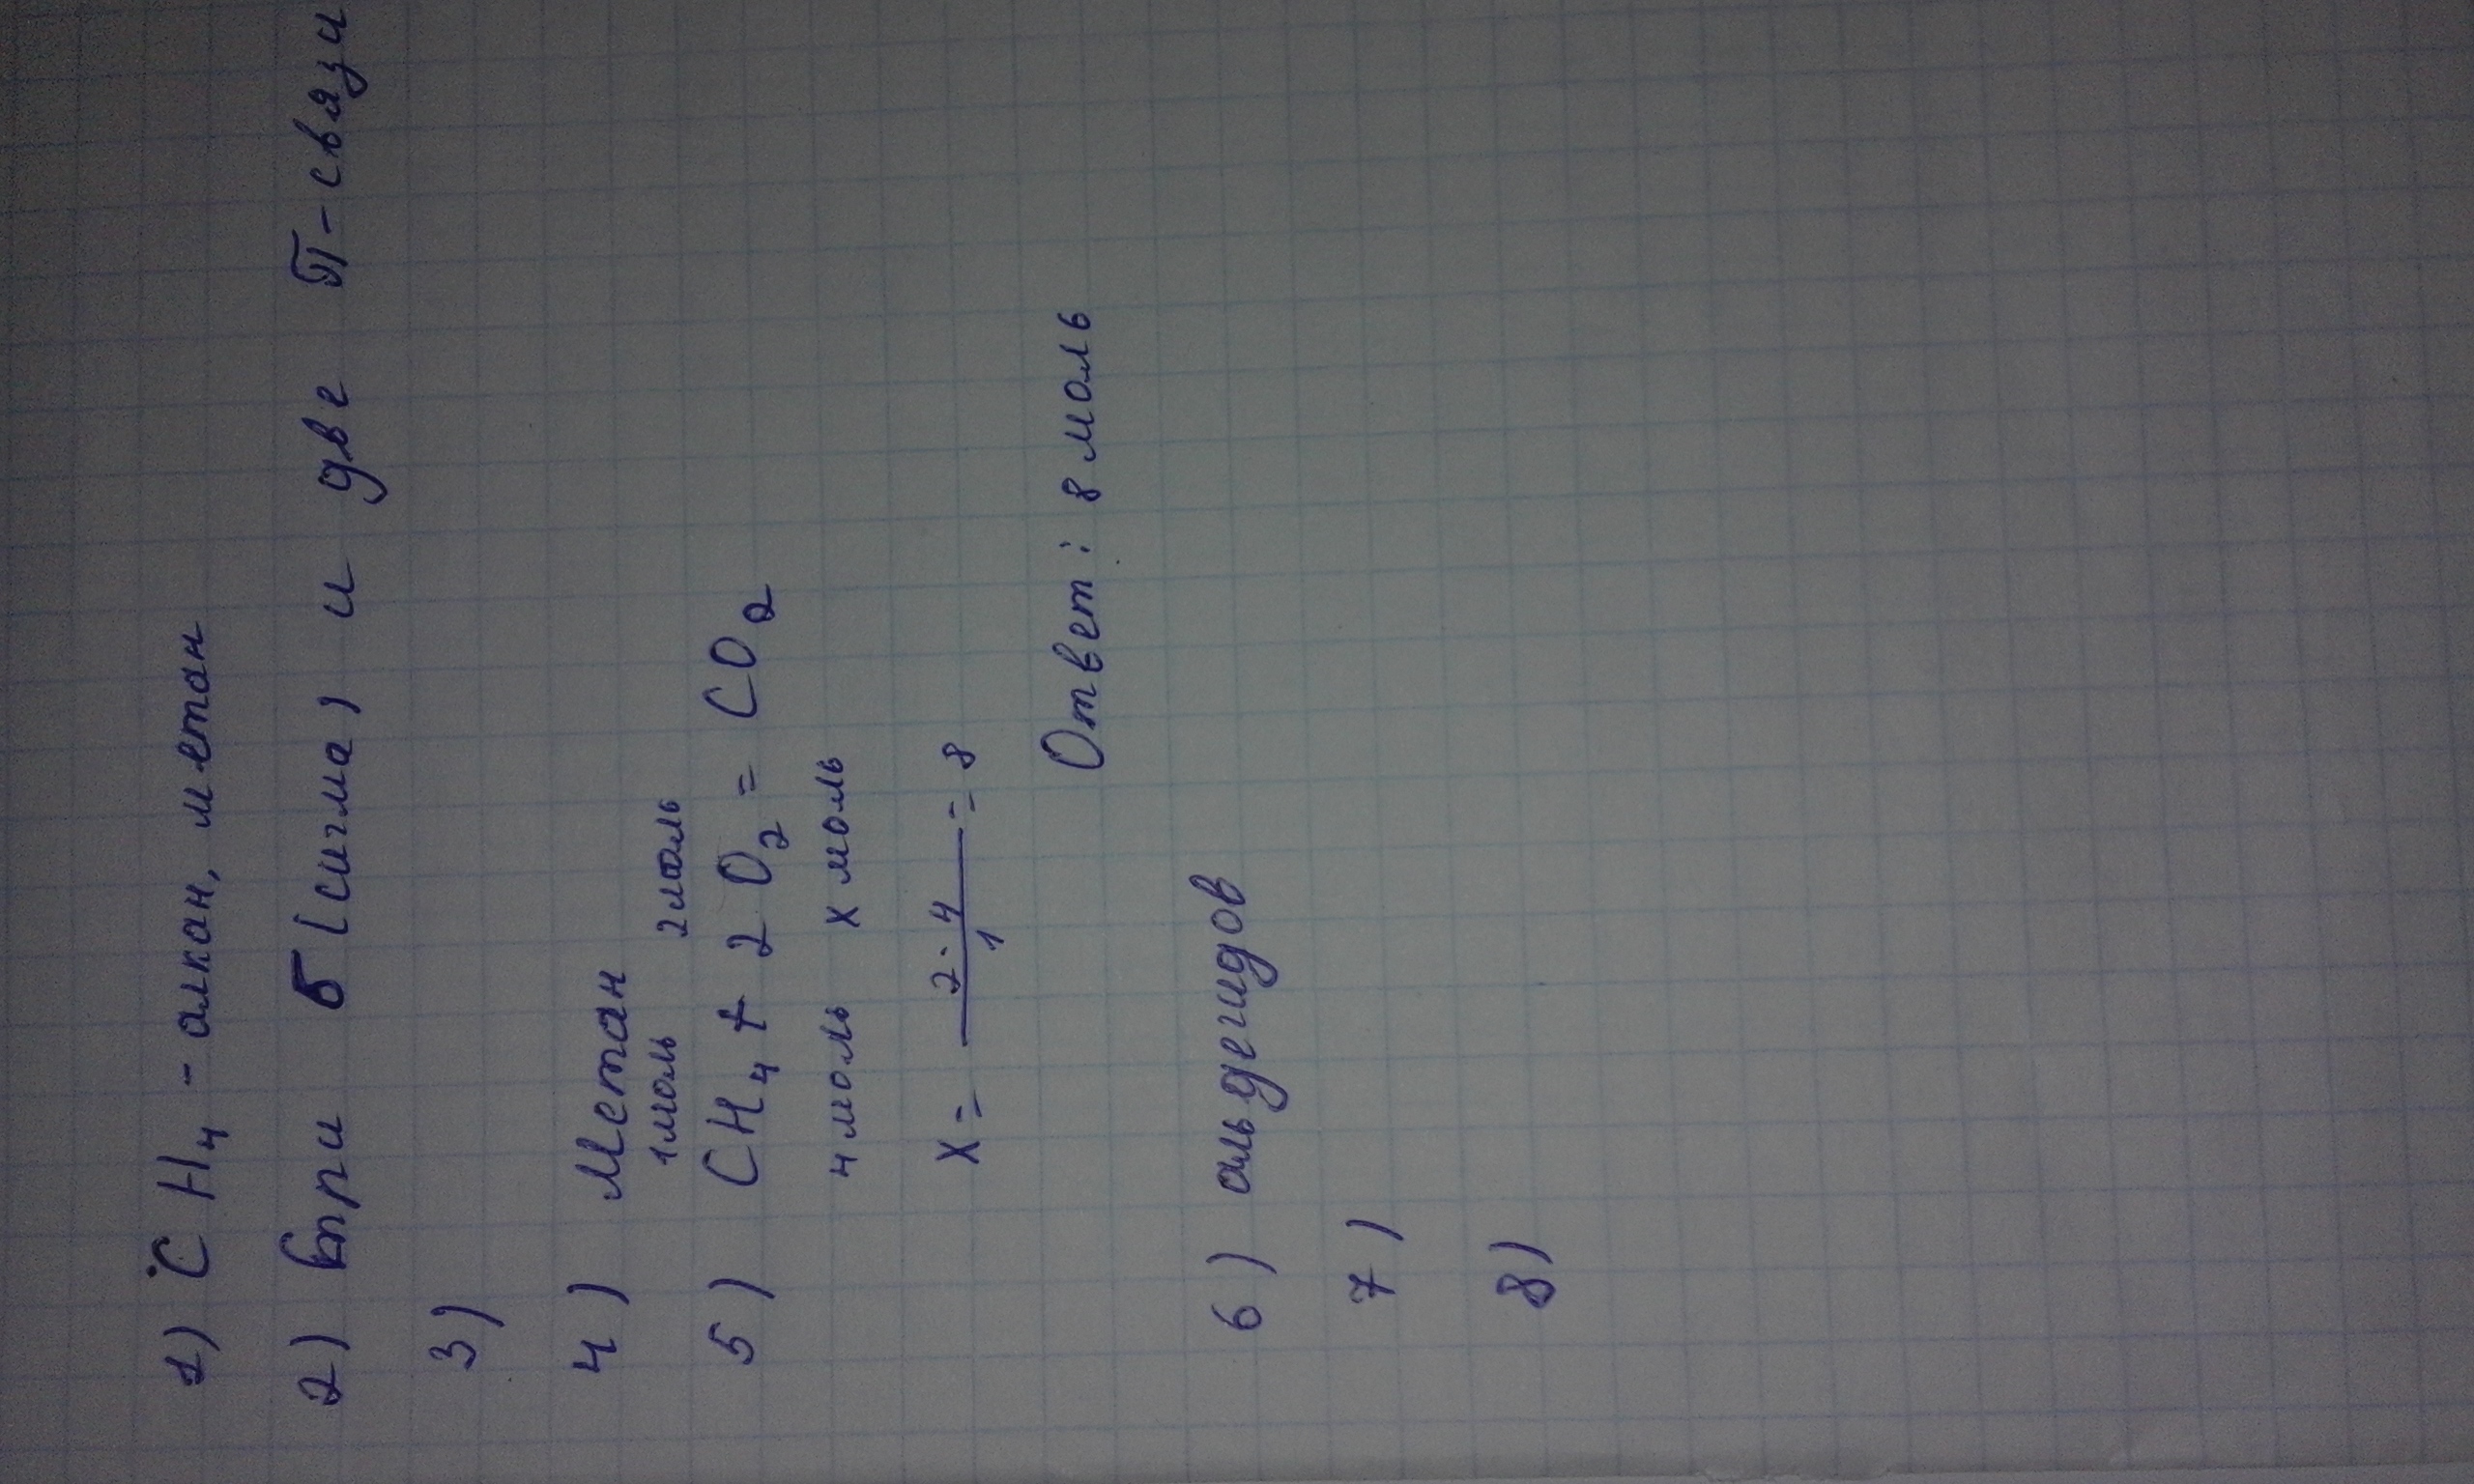 1) CH₄ - алкан, метан
2) три б (сигма) и две π-связи
3)
4) Метан
1моль 2моль
5) CH₄ + 2O₂ = CO₂
4 моль х моль
х = 2·4/1 = 8
Ответ: 8 моль
6) альдегидов
7)
8)